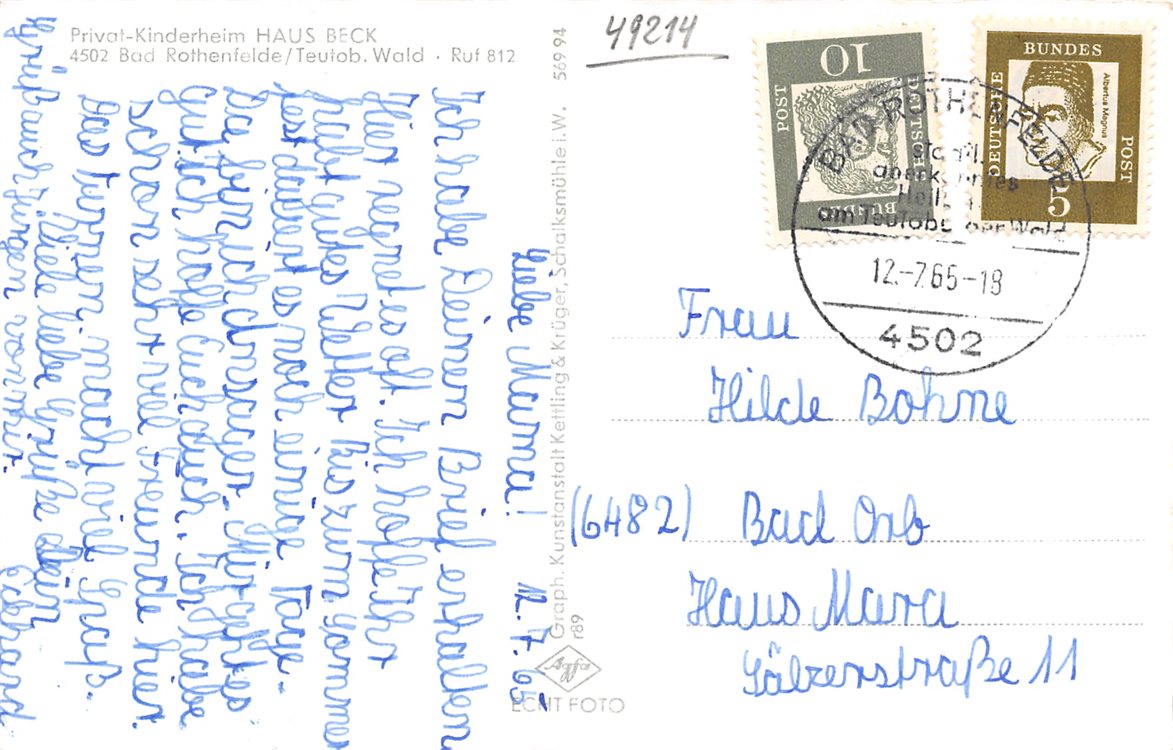 Privat-Kinderheim HAUS BECK
4502 Bad Rothenfelde/Teutob. Wald · Ruf 812
Liebe Mama! 12.7.65.
Ich habe Deinen Brief erhalten
Hier regnet es oft. Ich hoffe Ihr
habt gutes Wetter Bis zum Sommer
fest dauert es noch einige Tage.
Da bin ich d Mir geht es
gut ich hoffe Euch auch. Ich habe
schon sehr viel Freunde hier.
Das Turnen macht viel Spaß.
Viele liebe Grüße Dein
Eckhard
Grüß auch Jürgen von mir.
Graph. Kunstanstalt Kettling & Krüger, Schalksmühle i.W. 569 94
r89
Agfa
ECHT FOTO
49214
10
DEUTSCHE
BUNDES
POST
DEUTSCHE
BUNDES
POST
Albertus Magnus
5
BAD ROTHENFELDE
am Teutoburger Wald
12.-7.65-18
4502
Frau
Hilde Bohne
(6482) Bad Orb
Haus Mara
Sälzerstraße 11